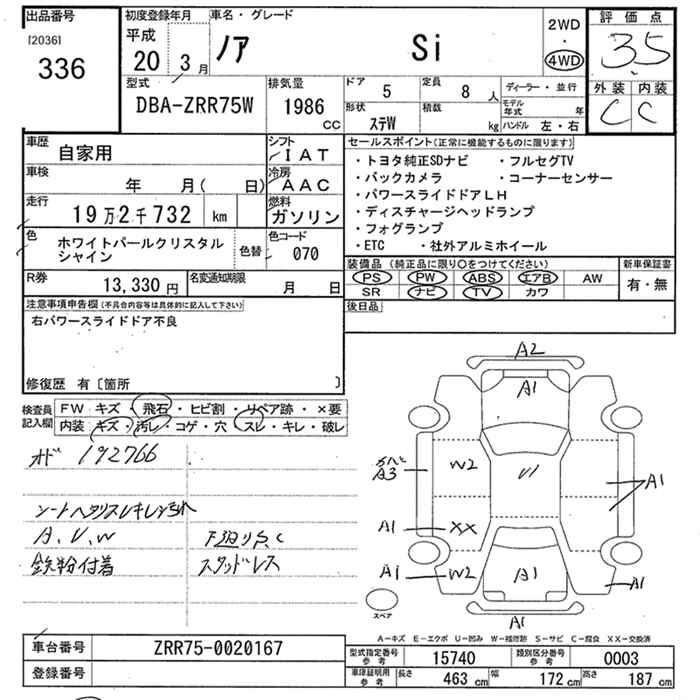 出品番号
[2036]
336
初度登録年月
平成
20 3月
車名・グレード
ノア Si
2WD
・
4WD
評価点
3.5
外装 内装
C C
型式
DBA-ZRR75W
排気量
1986 CC
ドア 5
定員 8 人
形状 ステW
積載 kg
ディーラー・並行
モデル年式 年
ハンドル 左・右
車歴
自家用
シフト
IAT
車検
年 月( 日)
冷房
AAC
走行
19万2千732 km
燃料
ガソリン
色
ホワイトパールクリスタル
シャイン
色替
色コード
070
R券 13,330円
名変通知期限 月 日
セールスポイント(正常に機能するものに限ります)
・トヨタ純正SDナビ ・フルセグTV
・バックカメラ ・コーナーセンサー
・パワースライドドアLH
・ディスチャージヘッドランプ
・フォグランプ
・ETC ・社外アルミホイール
装備品(純正品に限り○をつけてください)
PS PW ABS エアB AW
SR ナビ TV カワ
新車保証書
有・無
後日品
注意事項申告欄(不具合内容等は具体的に記入して下さい)
右パワースライドドア不良
修復歴 有〔箇所 〕
検査員
記入欄
FW キズ・飛石・ヒビ割・リペア跡・×要
内装 キズ・汚レ・コゲ・穴・スレ・キレ・破レ
192766
A.U.W
鉄粉付着
下廻りS.C
スタッドレス
A2
A1
W2
A3
U1
A1
A1
XX
A1
W2
A1
A1
A1
スペア
A-キズ E-エクボ U-凹み W-補修跡 S-サビ C-腐食 XX-交換済
車台番号 ZRR75-0020167
登録番号
型式指定番号
参考
15740
類別区分番号
参考
0003
車庫証明用
参考
長さ 463 cm 幅 172 cm 高さ 187 cm